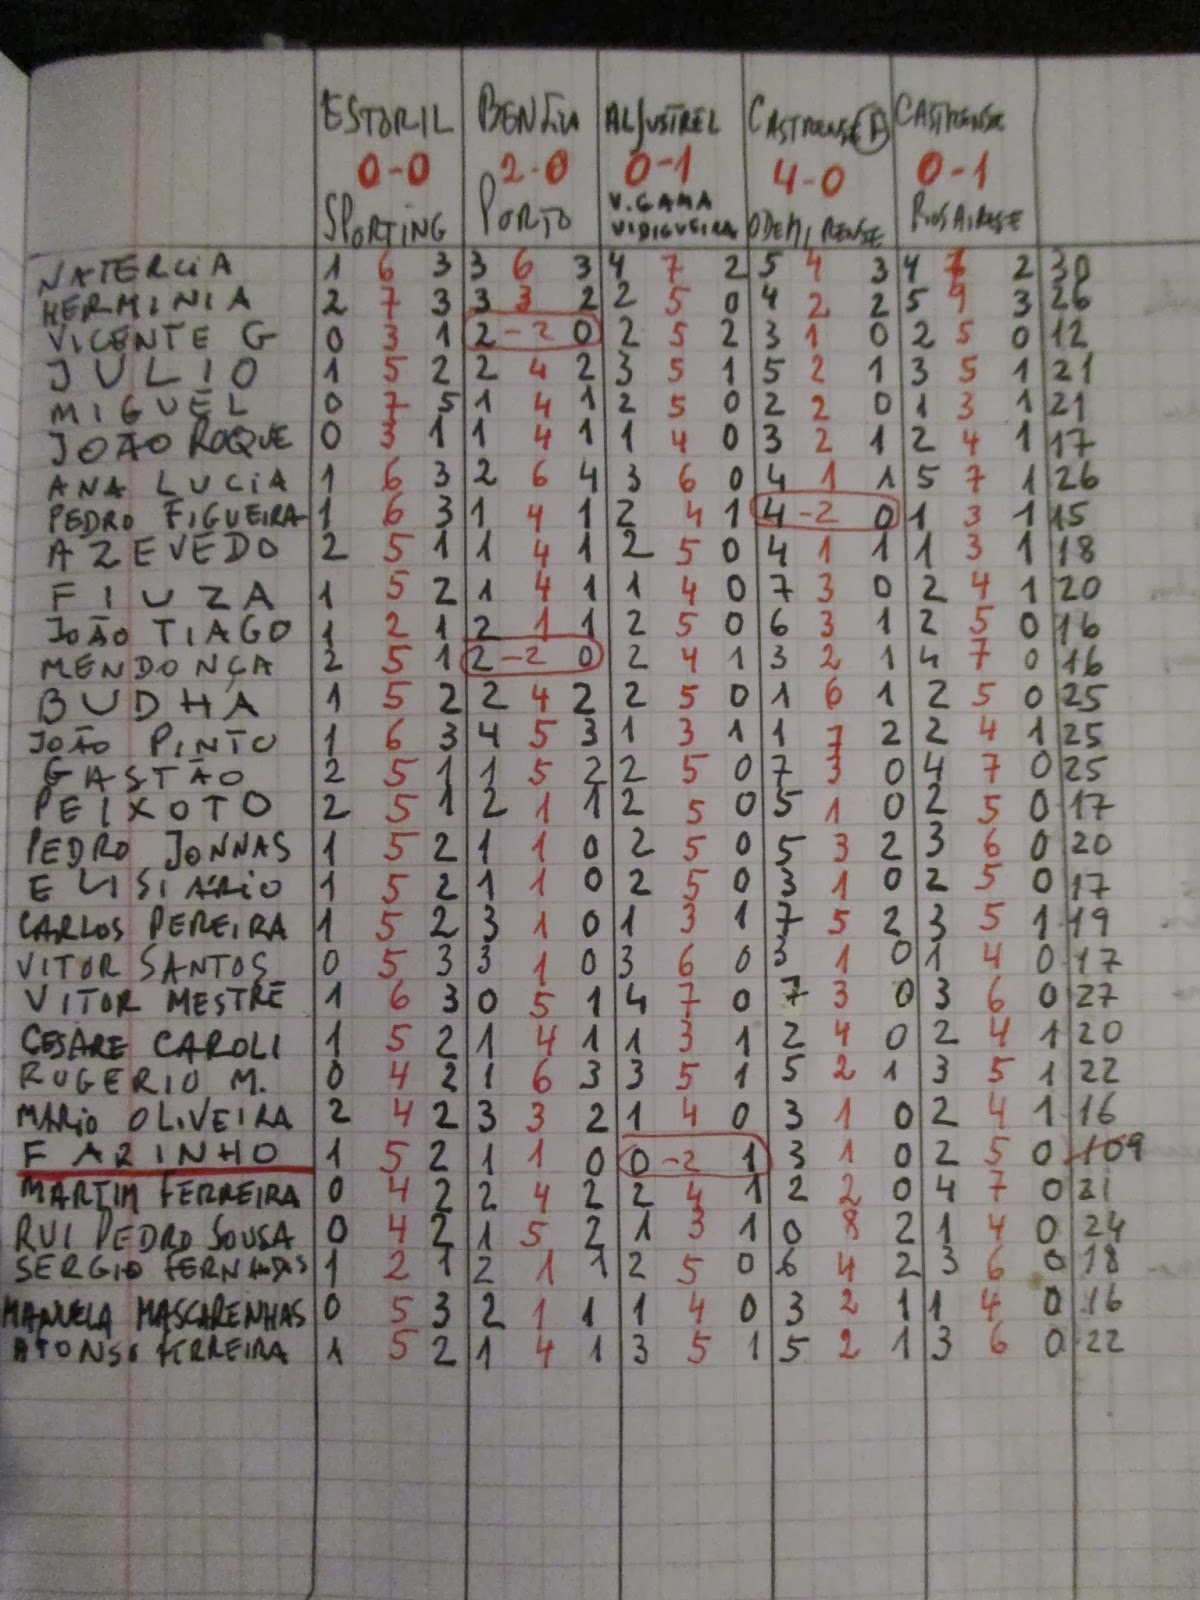 ESTORIL BENFICA ALJUSTREL CASTRENSE B CASTRENSE
0-0 2-0 0-1 4-0 0-1
SPORTING PORTO V. GAMA VIDIGUEIRA ODEMIRENSE ROSAIRENSE
NATERCIA 1 6 3 3 6 3 4 7 2 5 4 3 4 2 30
HERMINIA 2 7 3 3 3 2 2 5 0 4 2 2 5 9 3 26
VICENTE G 0 3 1 2 -2 0 2 5 2 3 1 0 2 5 0 12
JULIO 1 5 2 2 4 2 3 5 1 5 2 1 3 5 1 21
MIGUEL 0 7 5 1 4 1 2 5 0 2 2 0 1 3 1 21
JOÃO ROQUE 0 3 1 1 4 1 1 4 0 3 2 1 2 4 1 17
ANA LUCIA 1 6 3 2 6 4 3 6 0 4 1 1 5 7 1 26
PEDRO FIGUEIRA 1 6 3 1 4 1 2 4 1 4 -2 0 1 3 1 15
AZEVEDO 2 5 1 1 4 1 2 5 0 4 1 1 1 3 1 18
FIUZA 1 5 2 1 4 1 1 4 0 7 3 0 2 4 1 20
JOÃO TIAGO 1 2 1 2 1 1 2 5 0 6 3 1 2 5 0 16
MENDONÇA 2 5 1 2 -2 0 2 4 1 3 2 1 4 7 0 16
BUDHA 1 5 2 2 4 2 2 5 0 1 6 1 2 5 0 25
JOÃO PINTO 1 6 3 4 5 3 1 3 1 1 7 2 2 4 1 25
GASTÃO 2 5 1 1 5 2 2 5 0 7 3 0 4 7 0 25
PEIXOTO 2 5 1 2 1 1 2 5 0 5 1 0 2 5 0 17
PEDRO JONNAS 1 5 2 1 1 0 2 5 0 5 3 2 3 6 0 20
ELISIÁRIO 1 5 2 1 1 0 2 5 0 3 1 0 2 5 0 17
CARLOS PEREIRA 1 5 2 3 1 0 1 3 1 7 5 2 3 5 1 19
VITOR SANTOS 0 5 3 3 1 0 3 6 0 3 1 0 1 4 0 17
VITOR MESTRE 1 6 3 0 5 1 4 7 0 7 3 0 3 6 0 27
CESARE CAROLI 1 5 2 1 4 1 1 3 1 2 4 0 2 4 1 20
ROGERIO M. 0 4 2 1 6 3 3 5 1 5 2 1 3 5 1 22
MARIO OLIVEIRA 2 4 2 3 3 2 1 4 0 3 1 0 2 4 1 16
FARINHO 1 5 2 1 1 0 0 -2 1 3 1 0 2 5 0 109
MARTIM FERREIRA 0 4 2 2 4 2 2 4 1 2 2 0 4 7 0 21
RUI PEDRO SOUSA 0 4 2 1 5 2 1 3 1 0 8 2 1 4 0 24
SERGIO FERNANDES 1 2 1 2 1 1 2 5 0 6 4 2 3 6 0 18
MANUELA MASCARENHAS 0 5 3 2 1 1 1 4 0 3 2 1 1 4 0 16
AFONSO FERREIRA 1 5 2 1 4 1 3 5 1 5 2 1 3 6 0 22